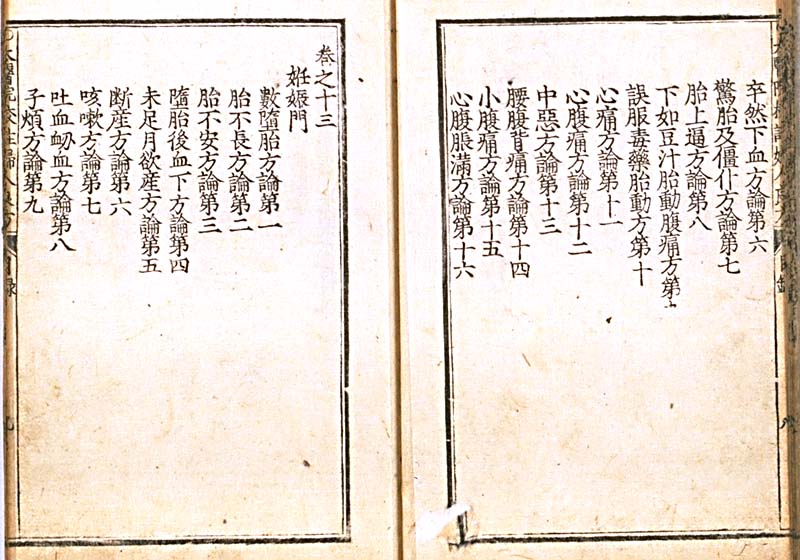 卒然下血方論第六
驚胎及僵仆方論第七
胎上逼方論第八
下如豆汁胎動腹痛方第
誤服毒藥胎動方第十
心痛方論第十一
心腹痛方論第十二
中惡方論第十三
腰腹背痛方論第十四
小腹痛方論第十五
心腹脹滿方論第十六
卷之十三
妊娠門
數墮胎方論第一
胎不長方論第二
胎不安方論第三
墮胎後血下方論第四
未足月欲産方論第五
断産方論第六
咳嗽方論第七
吐血衂血方論第八
子煩方論第九
醫院校註婦人良方
目録
九